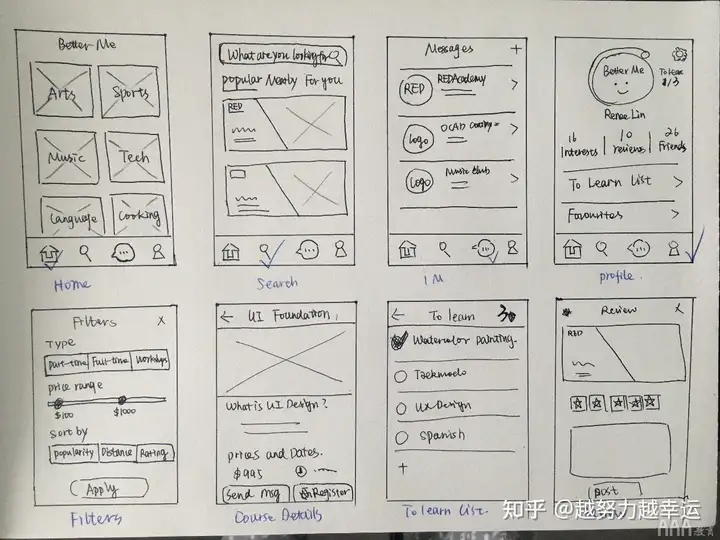 Better Me
Arts
Sports
Music
Tech
Language
Cooking
Home
What are you looking for
popular Nearby For you
RED
Search
Messages +
RED
REDAcademy
Logo
OCAD
Logo
Music Club
IM
Better Me
To Learn
Renee Lin
16
10
26
Interests
reviews
Friends
To Learn List >
Favourites >
profile.
Filters X
Type
Part-time
Full-time
Workshops
price range
$100
$1000
Sort by
popularity
Distance
Rating
Apply
Filters
← UI Foundation.
What is UI Design?
prices and Dates.
$995
Send msg
Register
Course Details
← To learn
Watercolor painting.
UX Design
Spanish
+
To learn List.
Review X
RED
post
知乎 @越努力越幸运
AAA教育